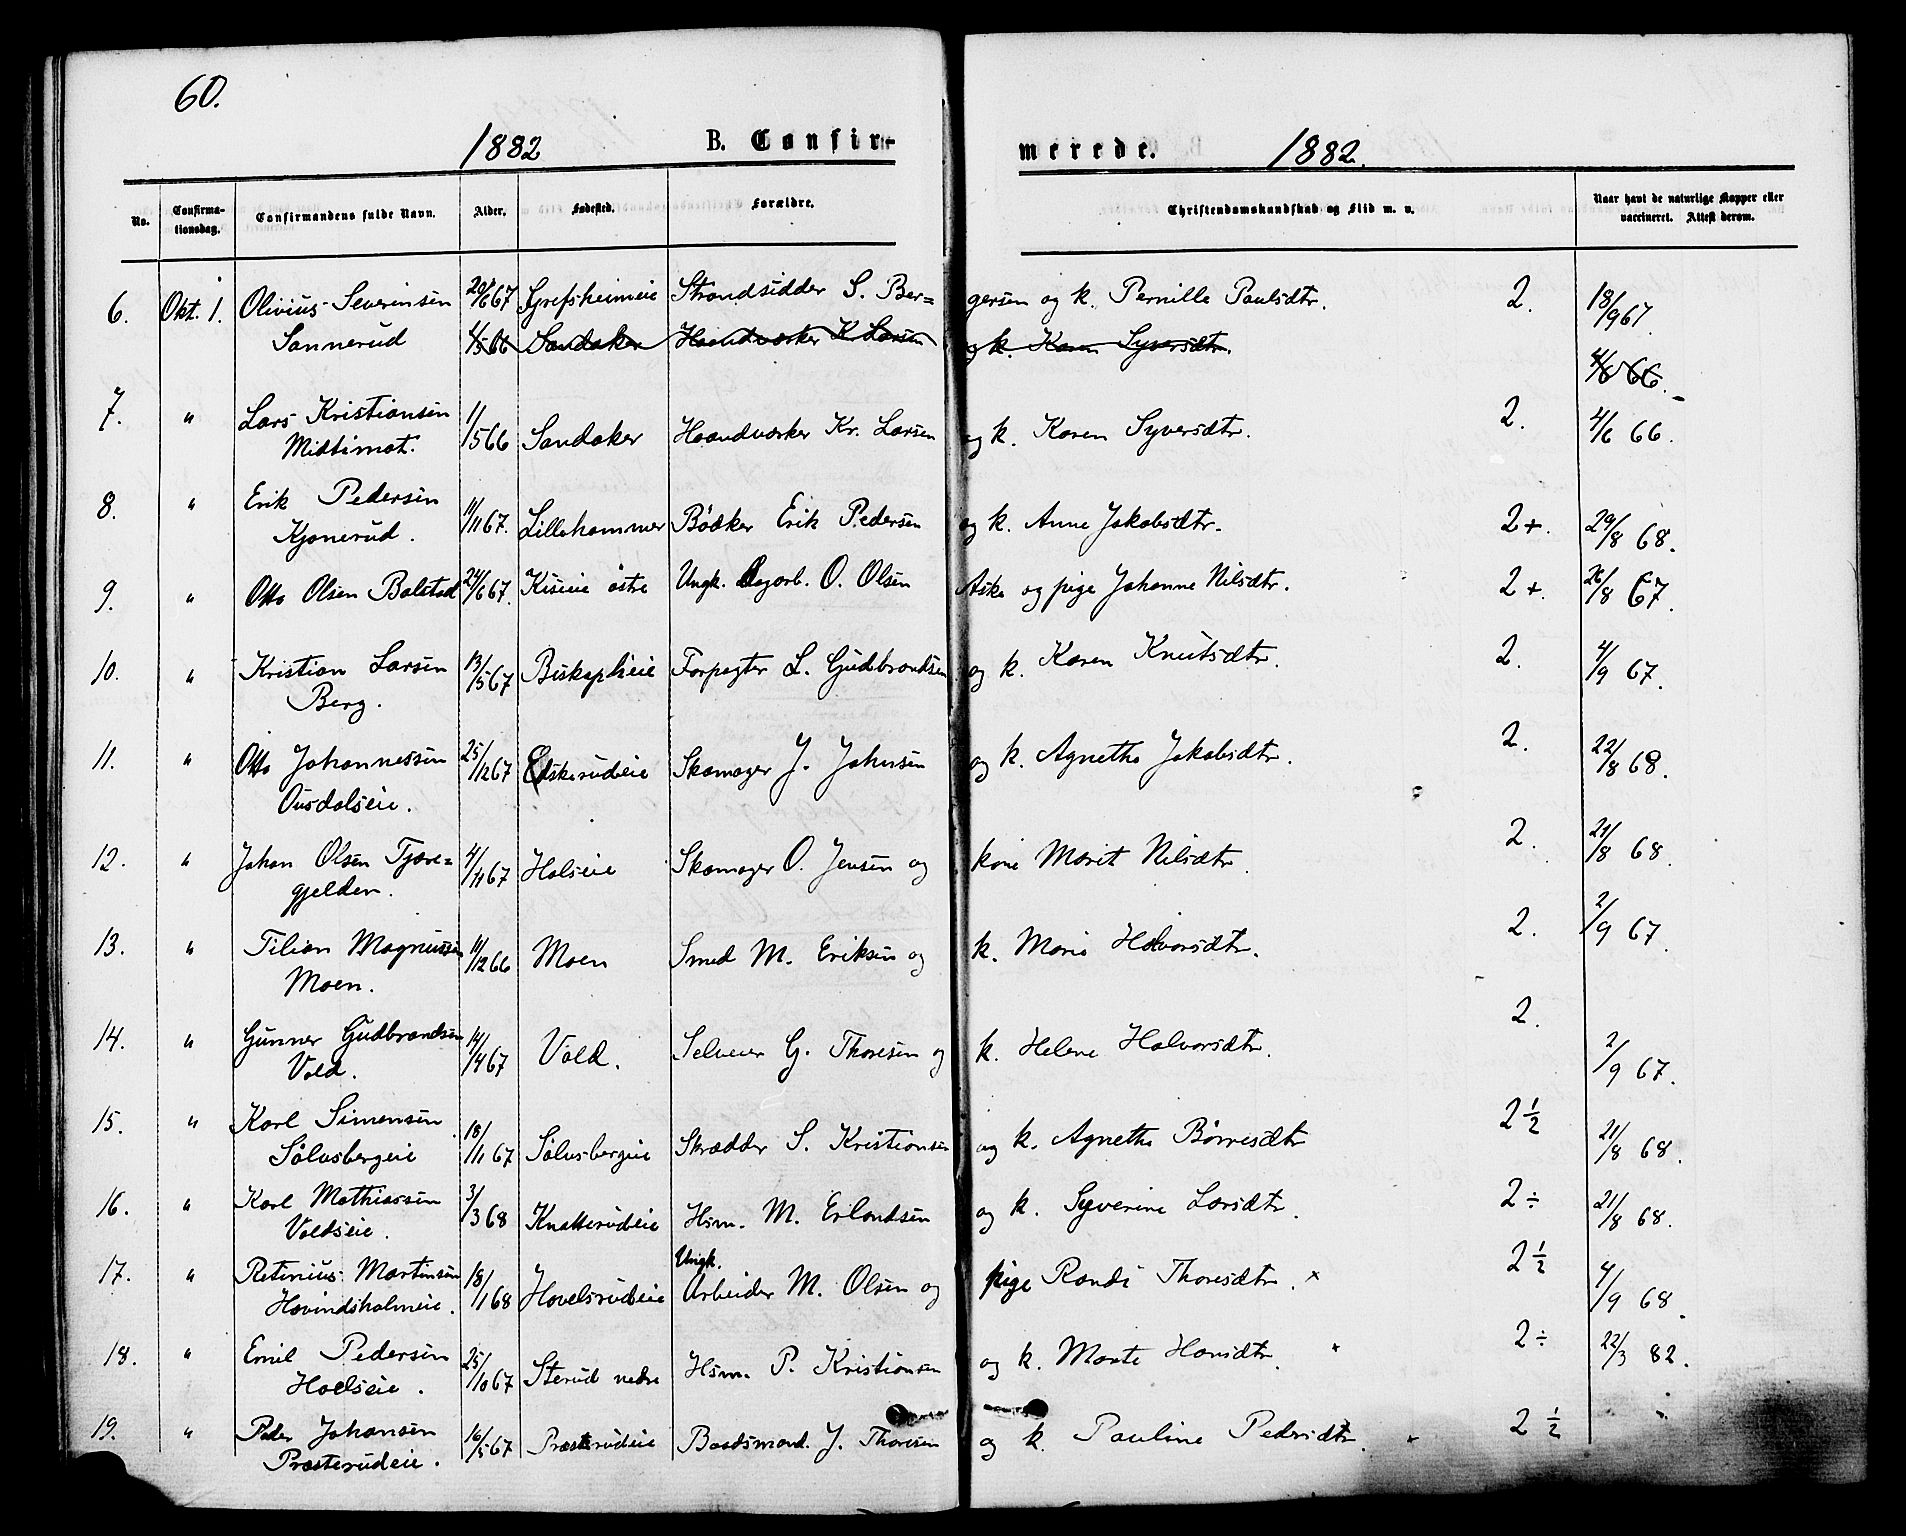 60.
1882 B. Confir- merede. 1882.
No. Confirma- Confirmandens fulde Navn. Alder. Fødested. Forældre. Christendomskundskab og Flid m. v. Naar havt de naturlige Kopper eller
tionsdag. vaccineret. Attest derom.
6. Okt. 1. Olivius Severinsen 20/6 67 Grefsheimeie Strandsidder S. Ber= gersen og k. Pernille Paulsdtr. 2. 18/9 67.
Sannerud 1/5 66 Sandaker Haandværker K. Larsen og k. Karen Syversdtr. 4/6 66.
7. " Lars Kristiansen 1/5 66 Sandaker Haandværker Kr. Larsen og k. Karen Syversdtr. 2. 4/6 66.
Midtimot.
8. " Erik Pedersen 11/11 67. Lillehammer Bødker Erik Pedersen og k. Anne Jakobsdtr. 2+. 29/8 68.
Kjonerud.
9. " Otto Olsen Bolstad 24/6 67. Kiseie østre Ungk. Dagarb. O. Olsen Aske og pige Johanne Nilsdtr. 2+. 26/8 67.
10. " Kristian Larsen 13/5 67 Biskopleie Forpagter L. Gudbrandsen og k. Karen Knutsdtr. 2. 4/9 67.
Berg.
11. " Otto Johannessen 25/12 67 Skomager J. Johnsen og k. Agnethe Jakobsdtr. 2. 22/8 68.
Ousdalseie.
12. " Johan Olsen Tjære= 4/11 67 Holseie Skomager O. Jensen og kone Marit Nilsdtr. 2. 21/8 68.
gjelden.
13. " Tilian Magnussen 11/12 66 Moen Smed M. Eriksen og k. Marie Halvorsdtr. 2. 2/9 67.
Moen.
14. " Gunner Gudbrandsen 14/4 67 Vold. Selveier G. Thoresen og k. Helene Halvorsdtr. 2. 2/9 67.
Vold.
15. " Karl Simensen 18/1 67 Sølvsbergeie Skrædder S. Kristiansen og k. Agnethe Børresdtr 2 1/2 21/8 68.
Sølvsbergeie
16. " Karl Mathiassen 3/3 68 Knatterudeie Hsm. M. Erlandsen og k. Syverine Larsdtr. 2÷ 21/8 68.
Voldseie.
17. " Retinius Martinsen 18/1 68 Hovelsrudeie Ungk. Arbeider M. Olsen og pige Randi Thoresdtr. x 2 1/2 4/9 68.
Hovindsholmeie.
18. " Emil Pedersen 25/10 67 Sterud nedre Hsm. P. Kristiansen og k. Marte Hansdtr. x 2÷ 22/3 82.
Hoelseie.
19. " Peder Johansen 16/5 67 Præsterudeie Baadsmand. J. Thoresen og k. Pauline Pedersdtr. 2 1/2
Præsterudeie.